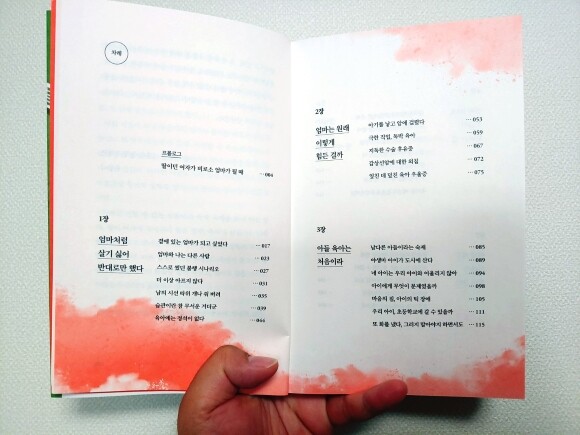 차례
프롤로그
딸이던 여자가 비로소 엄마가 될 때 ··· 004
1장
엄마처럼
살기 싫어
반대로만 했다
곁에 있는 엄마가 되고 싶었다 ··· 017
엄마와 나는 다른 사람 ··· 023
스스로 썼던 불행 시나리오 ··· 027
더 이상 아프지 않다 ··· 031
남의 시선 따위 개나 줘 버려 ··· 035
습관이란 참 무서운 거다군 ··· 039
육아에는 정석이 없다 ··· 044
2장
엄마는 원래
이렇게
힘든 걸까
아기를 낳고 암에 걸렸다 ··· 053
극한 직업, 독박 육아 ··· 059
지독한 수술 후유증 ··· 067
갑상선암에 대한 외침 ··· 072
엎친 데 덮친 육아 우울증 ··· 075
3장
아들 육아는
처음이라
남다른 아들이라는 숙제 ··· 085
야생마 아이가 도시에 산다 ··· 089
네 아이는 우리 아이와 어울리지 않아 ··· 094
아이에게 무엇이 문제였을까 ··· 098
마음의 짐, 아이의 틱 장애 ··· 105
우리 아이, 초등학교에 갈 수 있을까 ··· 111
또 화를 냈다, 그러지 말아야지 하면서도 ··· 115